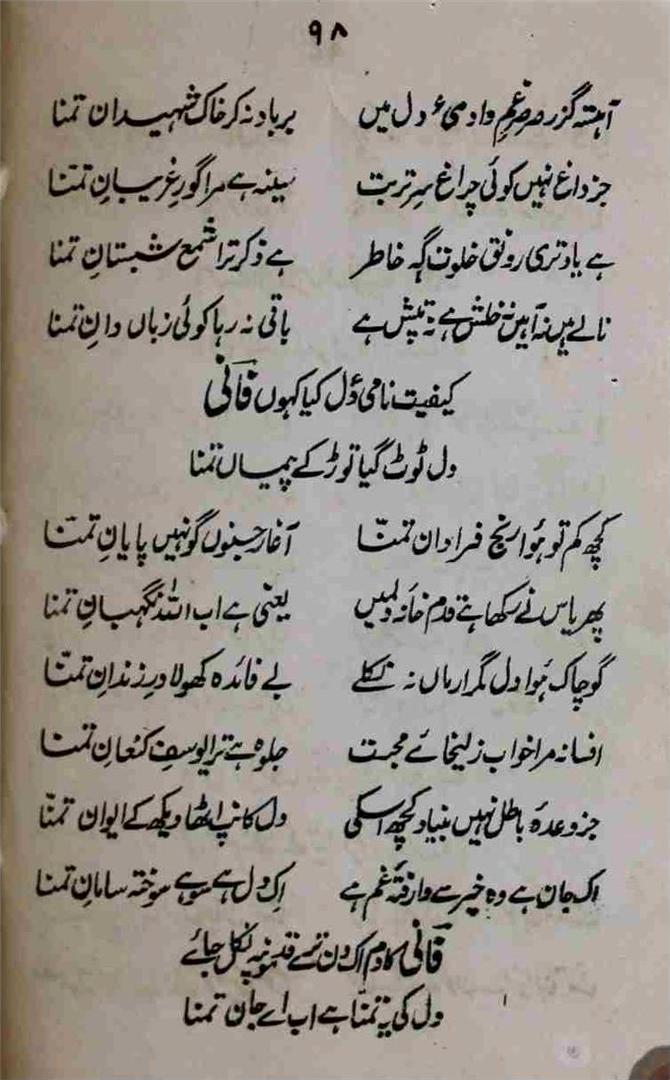 ۹۸
آہستہ گزر صرصرِ غم وادیٔ دل میں برباد نہ کر خاک شہیدان تمنا
جز داغ نہیں کوئی چراغ سرِ تربت سینہ ہے مرا گورِ غریبانِ تمنّا
ہے یاد تری رونق خلوت گہہ خاطر ہے ذکر ترا شمع شبستانِ تمنا
نالے ہیں نہ آہیں نہ خلش ہے نہ تپش ہے باقی نہ رہا کوئی زباں دانِ تمنا
کیفیت ناکامیٔ دل کیا کہوں فانی
دل ٹوٹ گیا توڑ کے پیماں تمنا
کچھ کم تو ہوا رنج فراوان تمنّا آغاز جنوں گو نہیں پایانِ تمنّا
پھر یاس نے رکھا ہے قدم خانۂ دلمیں یعنی ہے اب اللہ نگہبانِ تمنا
گو چاک ہوا دل مگر ارماں نہ نکلے بے فائدہ کھولا درِ زندانِ تمنّا
افسانہ مرا خواب زلیخائے محبت جلوہ ہے ترا یوسفِ کنعانِ تمنا
جز وعدہ باطل نہیں بنیاد کچھ اسکی دل کانپ اٹھا دیکھ کے ایوان تمنّا
اک جان ہے وہ خیر سے وارفتۂ غم ہے اِک دل ہے سو ہے سوختہ سامانِ تمنا
فانی کا دم اک دن ترے قدمونپہ نکل جائے
دل کی یہ تمنّا ہے اب اے جان تمنا